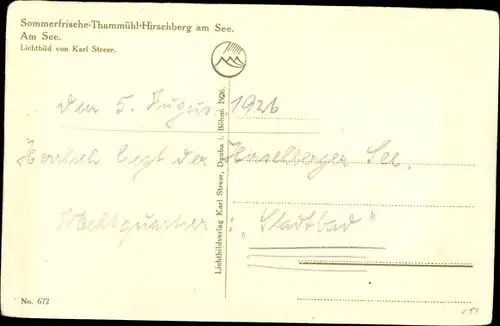 Sommerfrische-Thammühl-Hirschberg am See.
Am See.
Lichtbild von Karl Streer.
den 5. August 1926
Herrlich liegt der Hirschberger See.
Nachtquartier: „Stadtbad"
Lichtbildverlag Karl Streer, Dauba i. Böhm. 1926.
No. 672